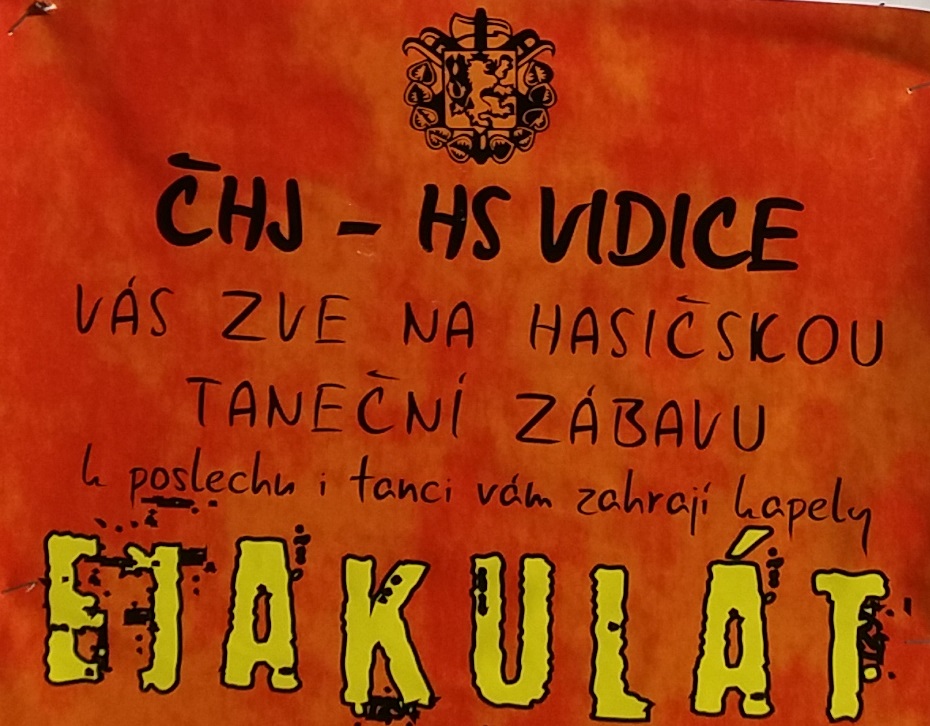 ČHJ - HS VIDICE
VÁS ZVE NA HASIČSKOU
TANEČNÍ ZÁBAVU
k poslechu i tanci vám zahrají kapely
EJAKULÁT